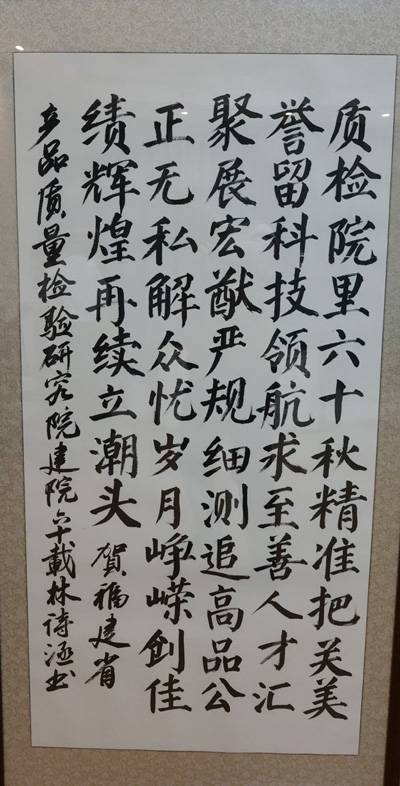 质检院里六十秋精准把关美
誉留科技领航求至善人才汇
聚展宏猷严规细测追高品公
正无私解众忧岁月峥嵘创佳
绩辉煌再续立潮头 贺福建省
产品质量检验研究院建院六十载林诗涵书